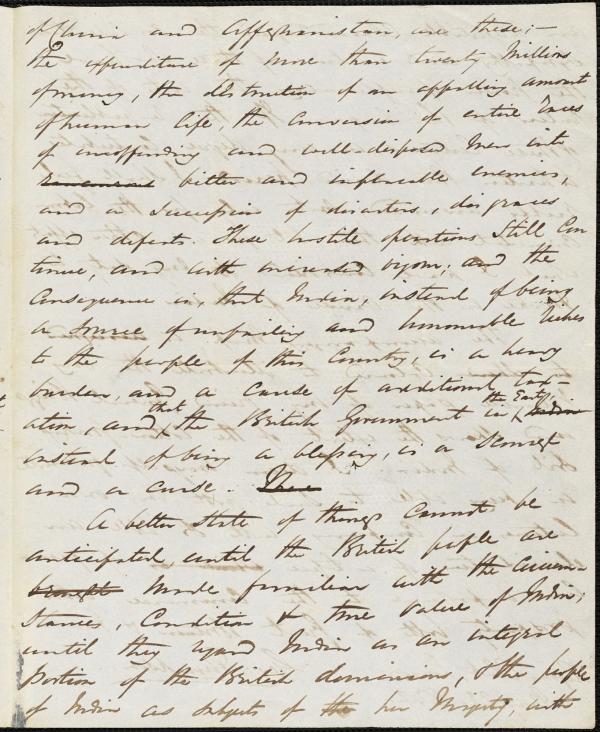 of China and Affghanistan, are these;—
the expenditure of more than twenty Millions
of money, the destruction of an appalling amount
of human life, the conversion of entire races
of unoffending and well-disposed men into
bitter and implacable enemies,
and a succession of disasters, disgraces
and defeats. These hostile operations still con
tinue, and with increased vigour; and the
consequence is, that India, instead of being
a source of unfailing and honourable riches
to the people of this Country, is a heavy
burden, and a cause of additional tax-
ation, and that the British Government in the East, India
instead of being a blessing, is a scourge
and a curse.
A better state of things cannot be
anticipated, until the British people are
brought made familiar with the circum-
stances, Condition & true value of India;
until they regard India as an integral
portion of the British dominions, & the people
of India as subjects of the her Majesty, with